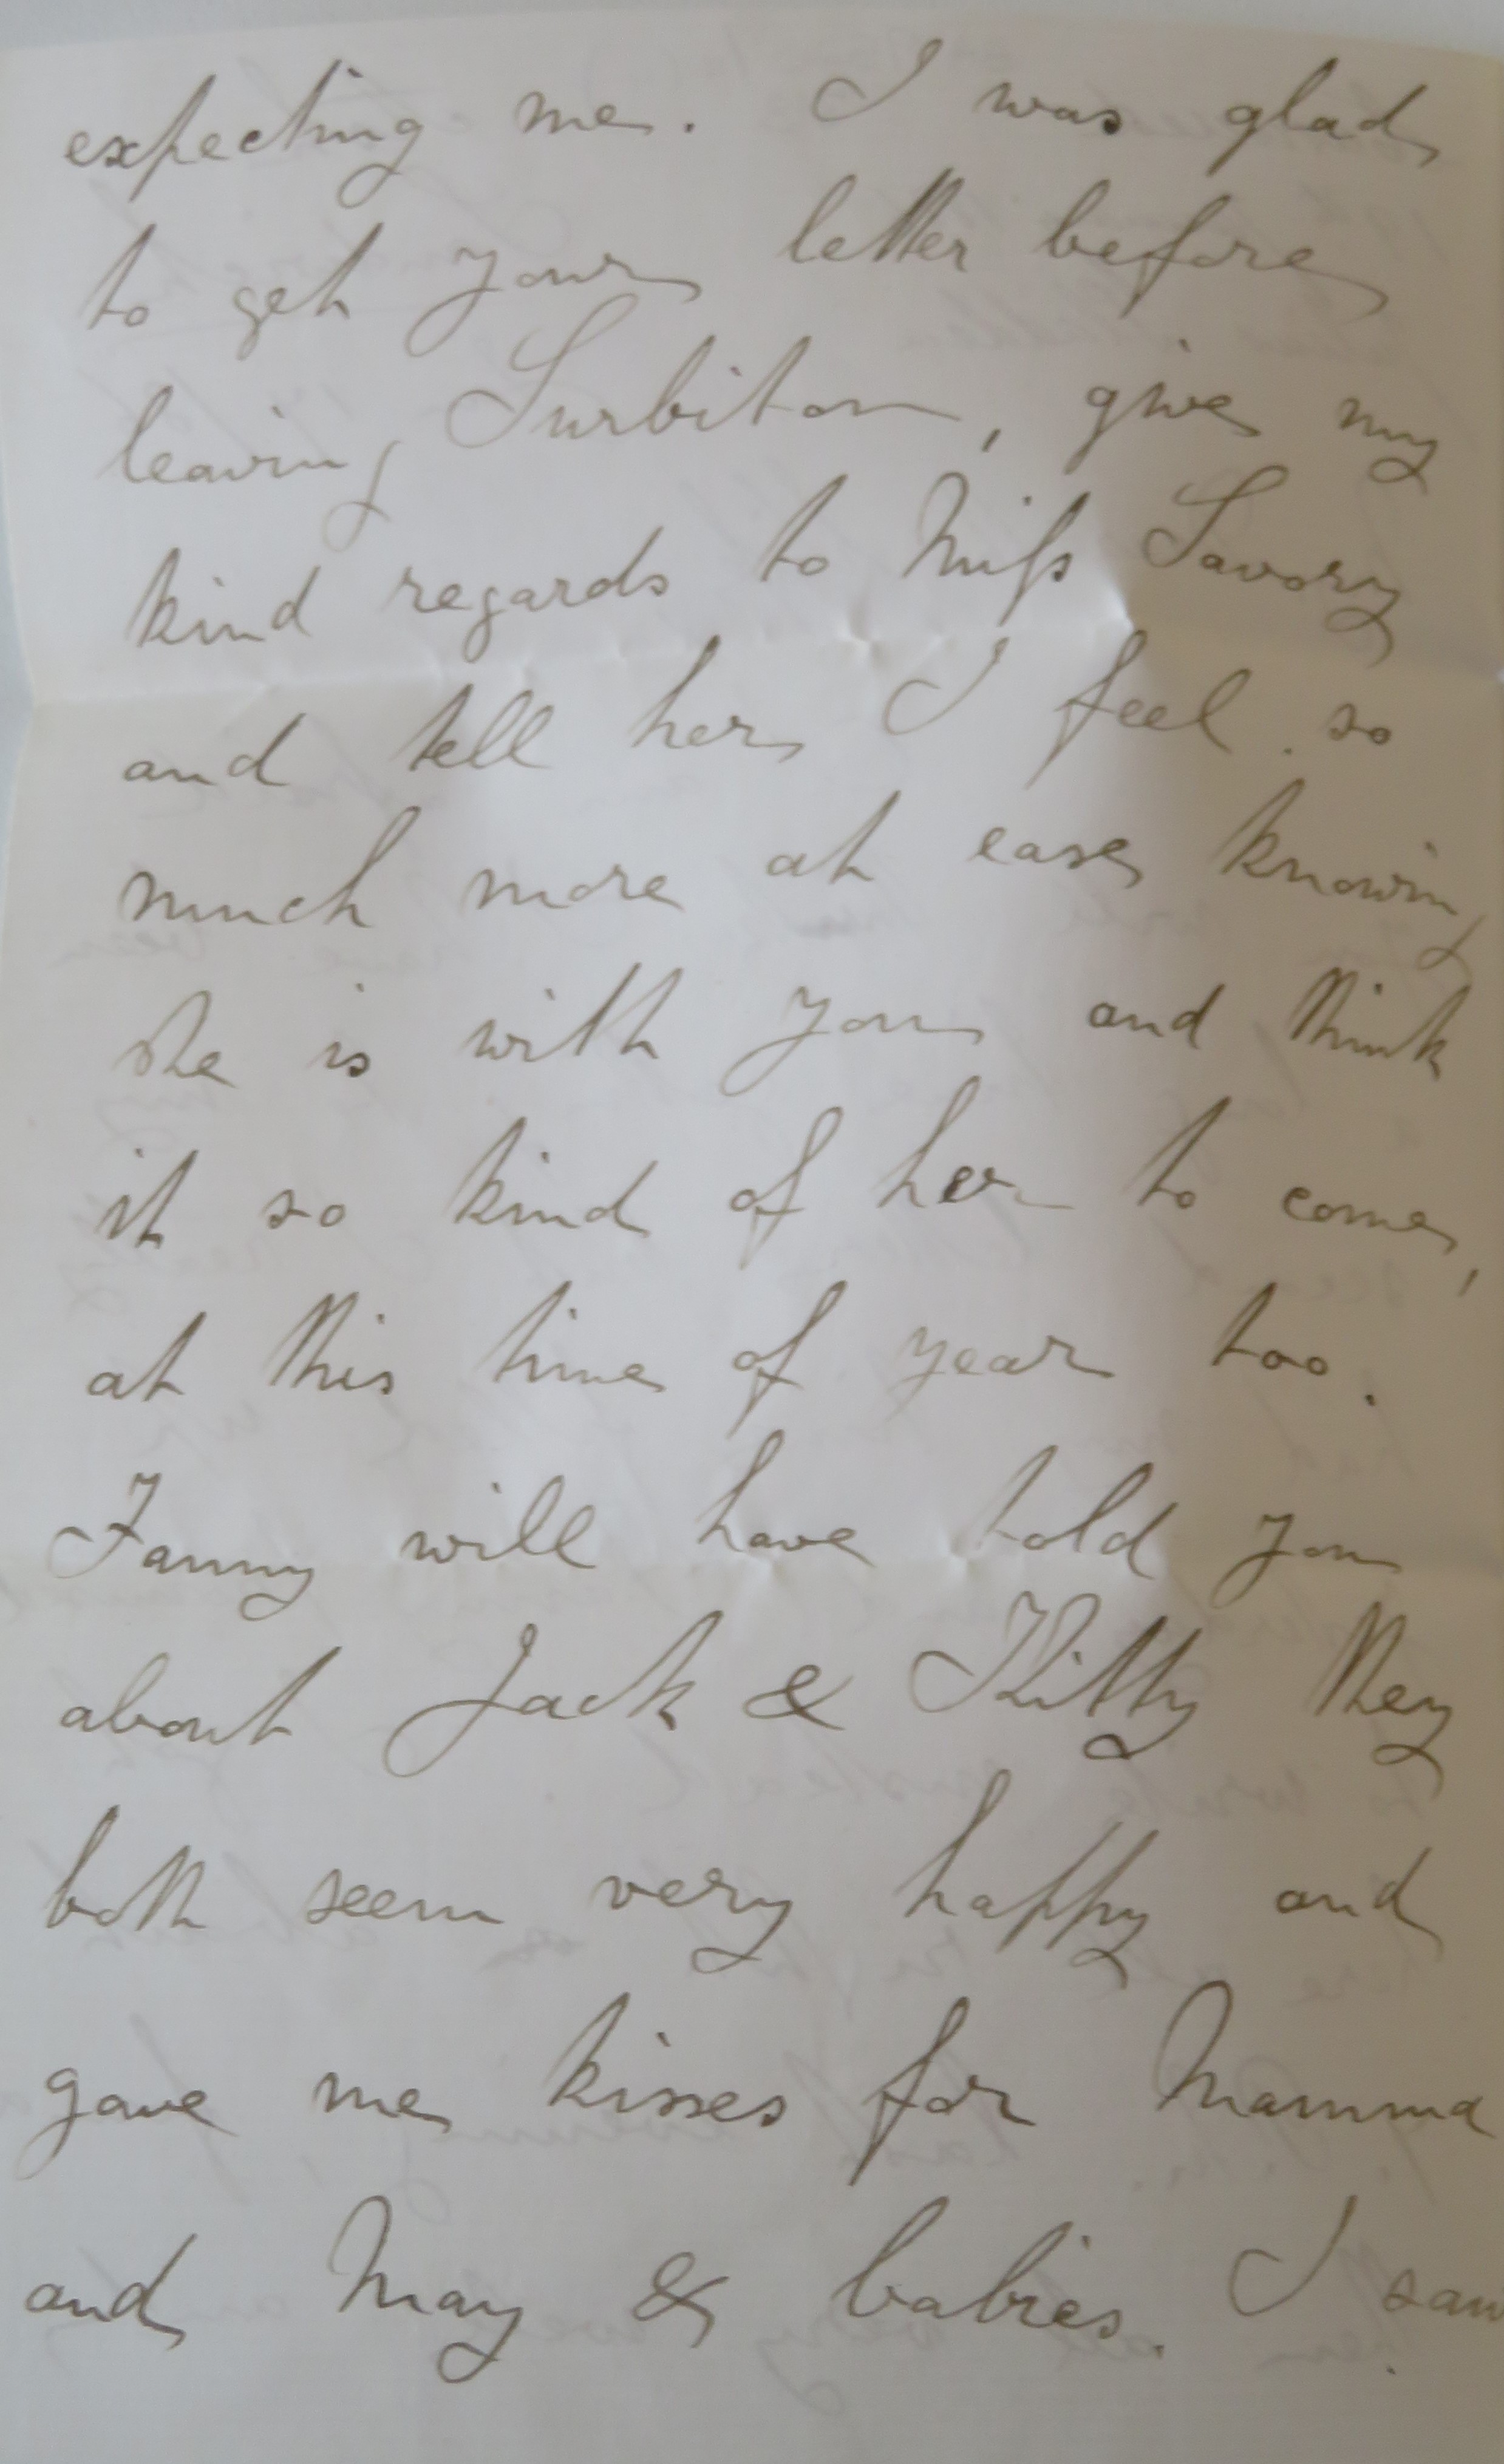 expecting me. I was glad
to get your letter before
leaving Surbiton, give my
kind regards to Miss Savory
and tell her I feel so
much more at ease knowing
she is with you and think
it so kind of her to come,
at this time of year too.
Fanny will have told you
about Jack & Kitty they
both seem very happy and
gave me kisses for Mamma
and May & babies. I saw